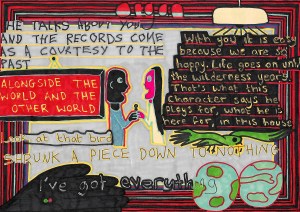 HE TALKS ABOUT YOU
AND THE RECORDS COME
AS A COURTESY TO THE
PAST
With you it is easy
because we are so
happy. Life goes on until
the wilderness years.
That's what this
character says he
plays for, what he is
here for, in this house
ALONGSIDE THE
WORLD AND THE
OTHER WORLD
Look at that bird
SHRUNK A PIECE DOWN TO NOTHING
I've got everything